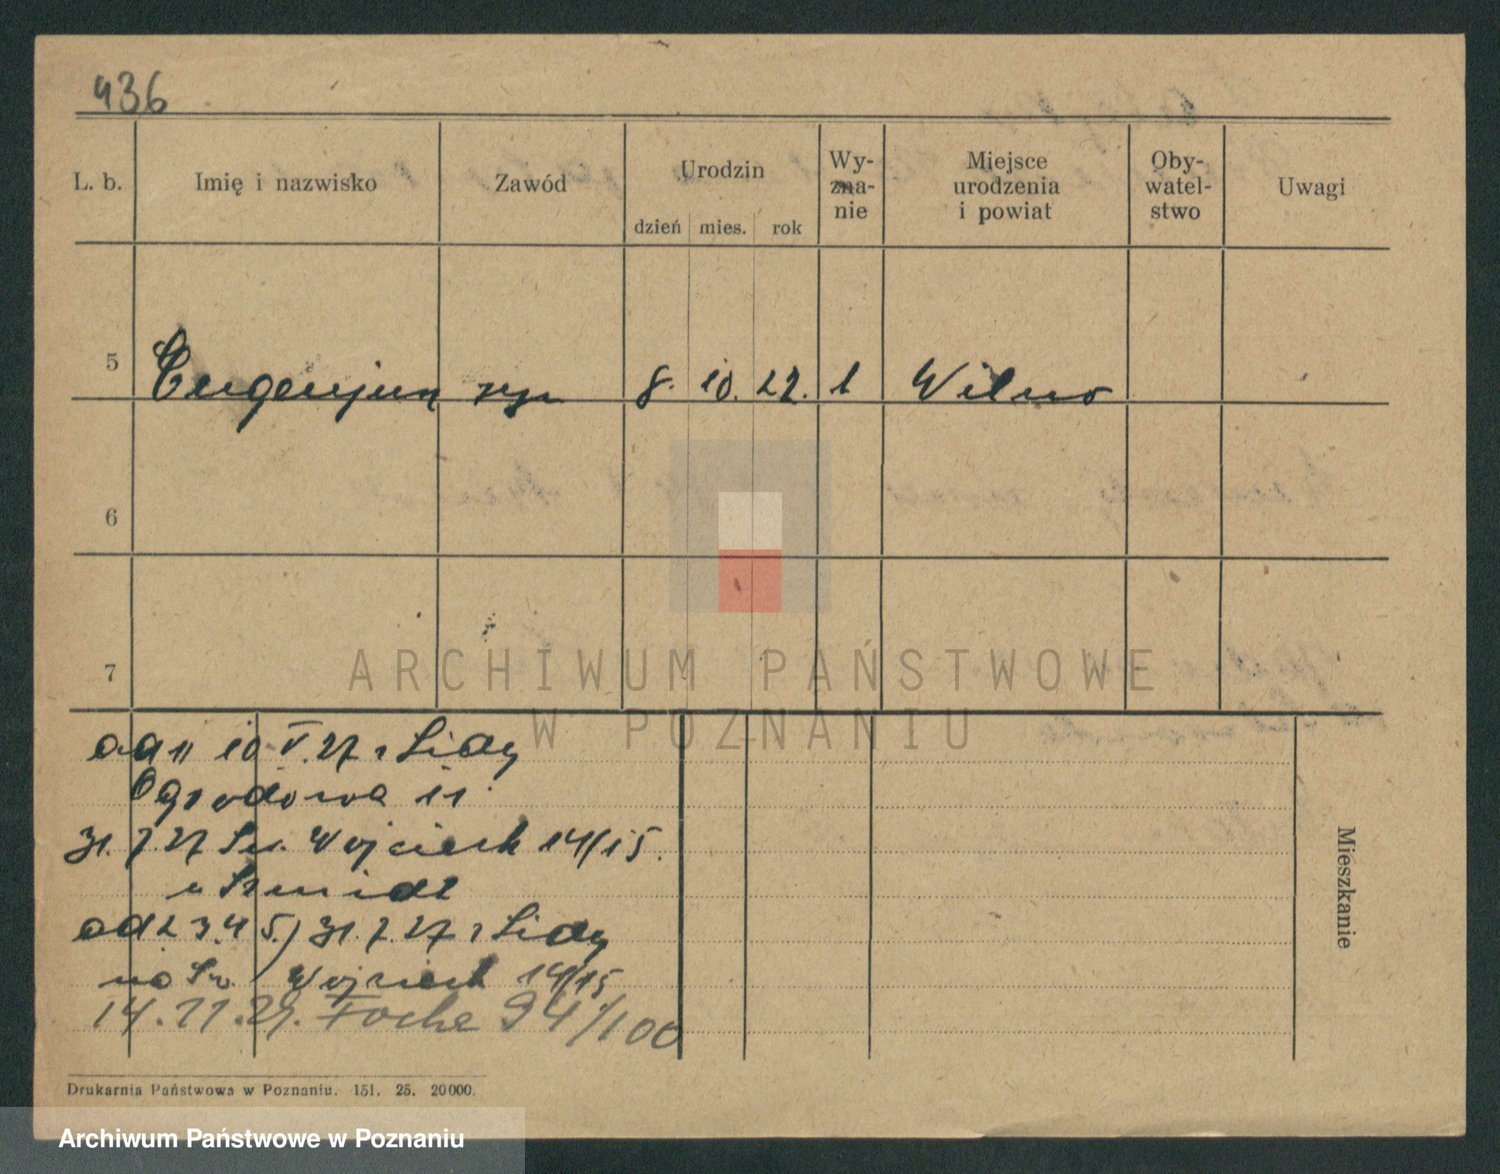 436
L. b. Imię i nazwisko Zawód Urodzin Wy-zna-nie Miejsce urodzenia i powiat Oby-watel-stwo Uwagi
dzień mies. rok
5 Eugenjusz syn 8. 10. 22. 1 Wilno
6
7
ARCHIWUM PAŃSTWOWE
W POZNANIU
od 1) 10 V. 27 z Lidy
Ogrodowa 11
31. 7. 27 Św. Wojciech 14/15.
u Szmidt
od 2 3. 4 5.) 31. 7. 27 z Lidy
na Św. Wojciech 14/15
14. 11. 29. Focha 94/100
Mieszkanie
Drukarnia Państwowa w Poznaniu. 151. 25. 20000.
Archiwum Państwowe w Poznaniu